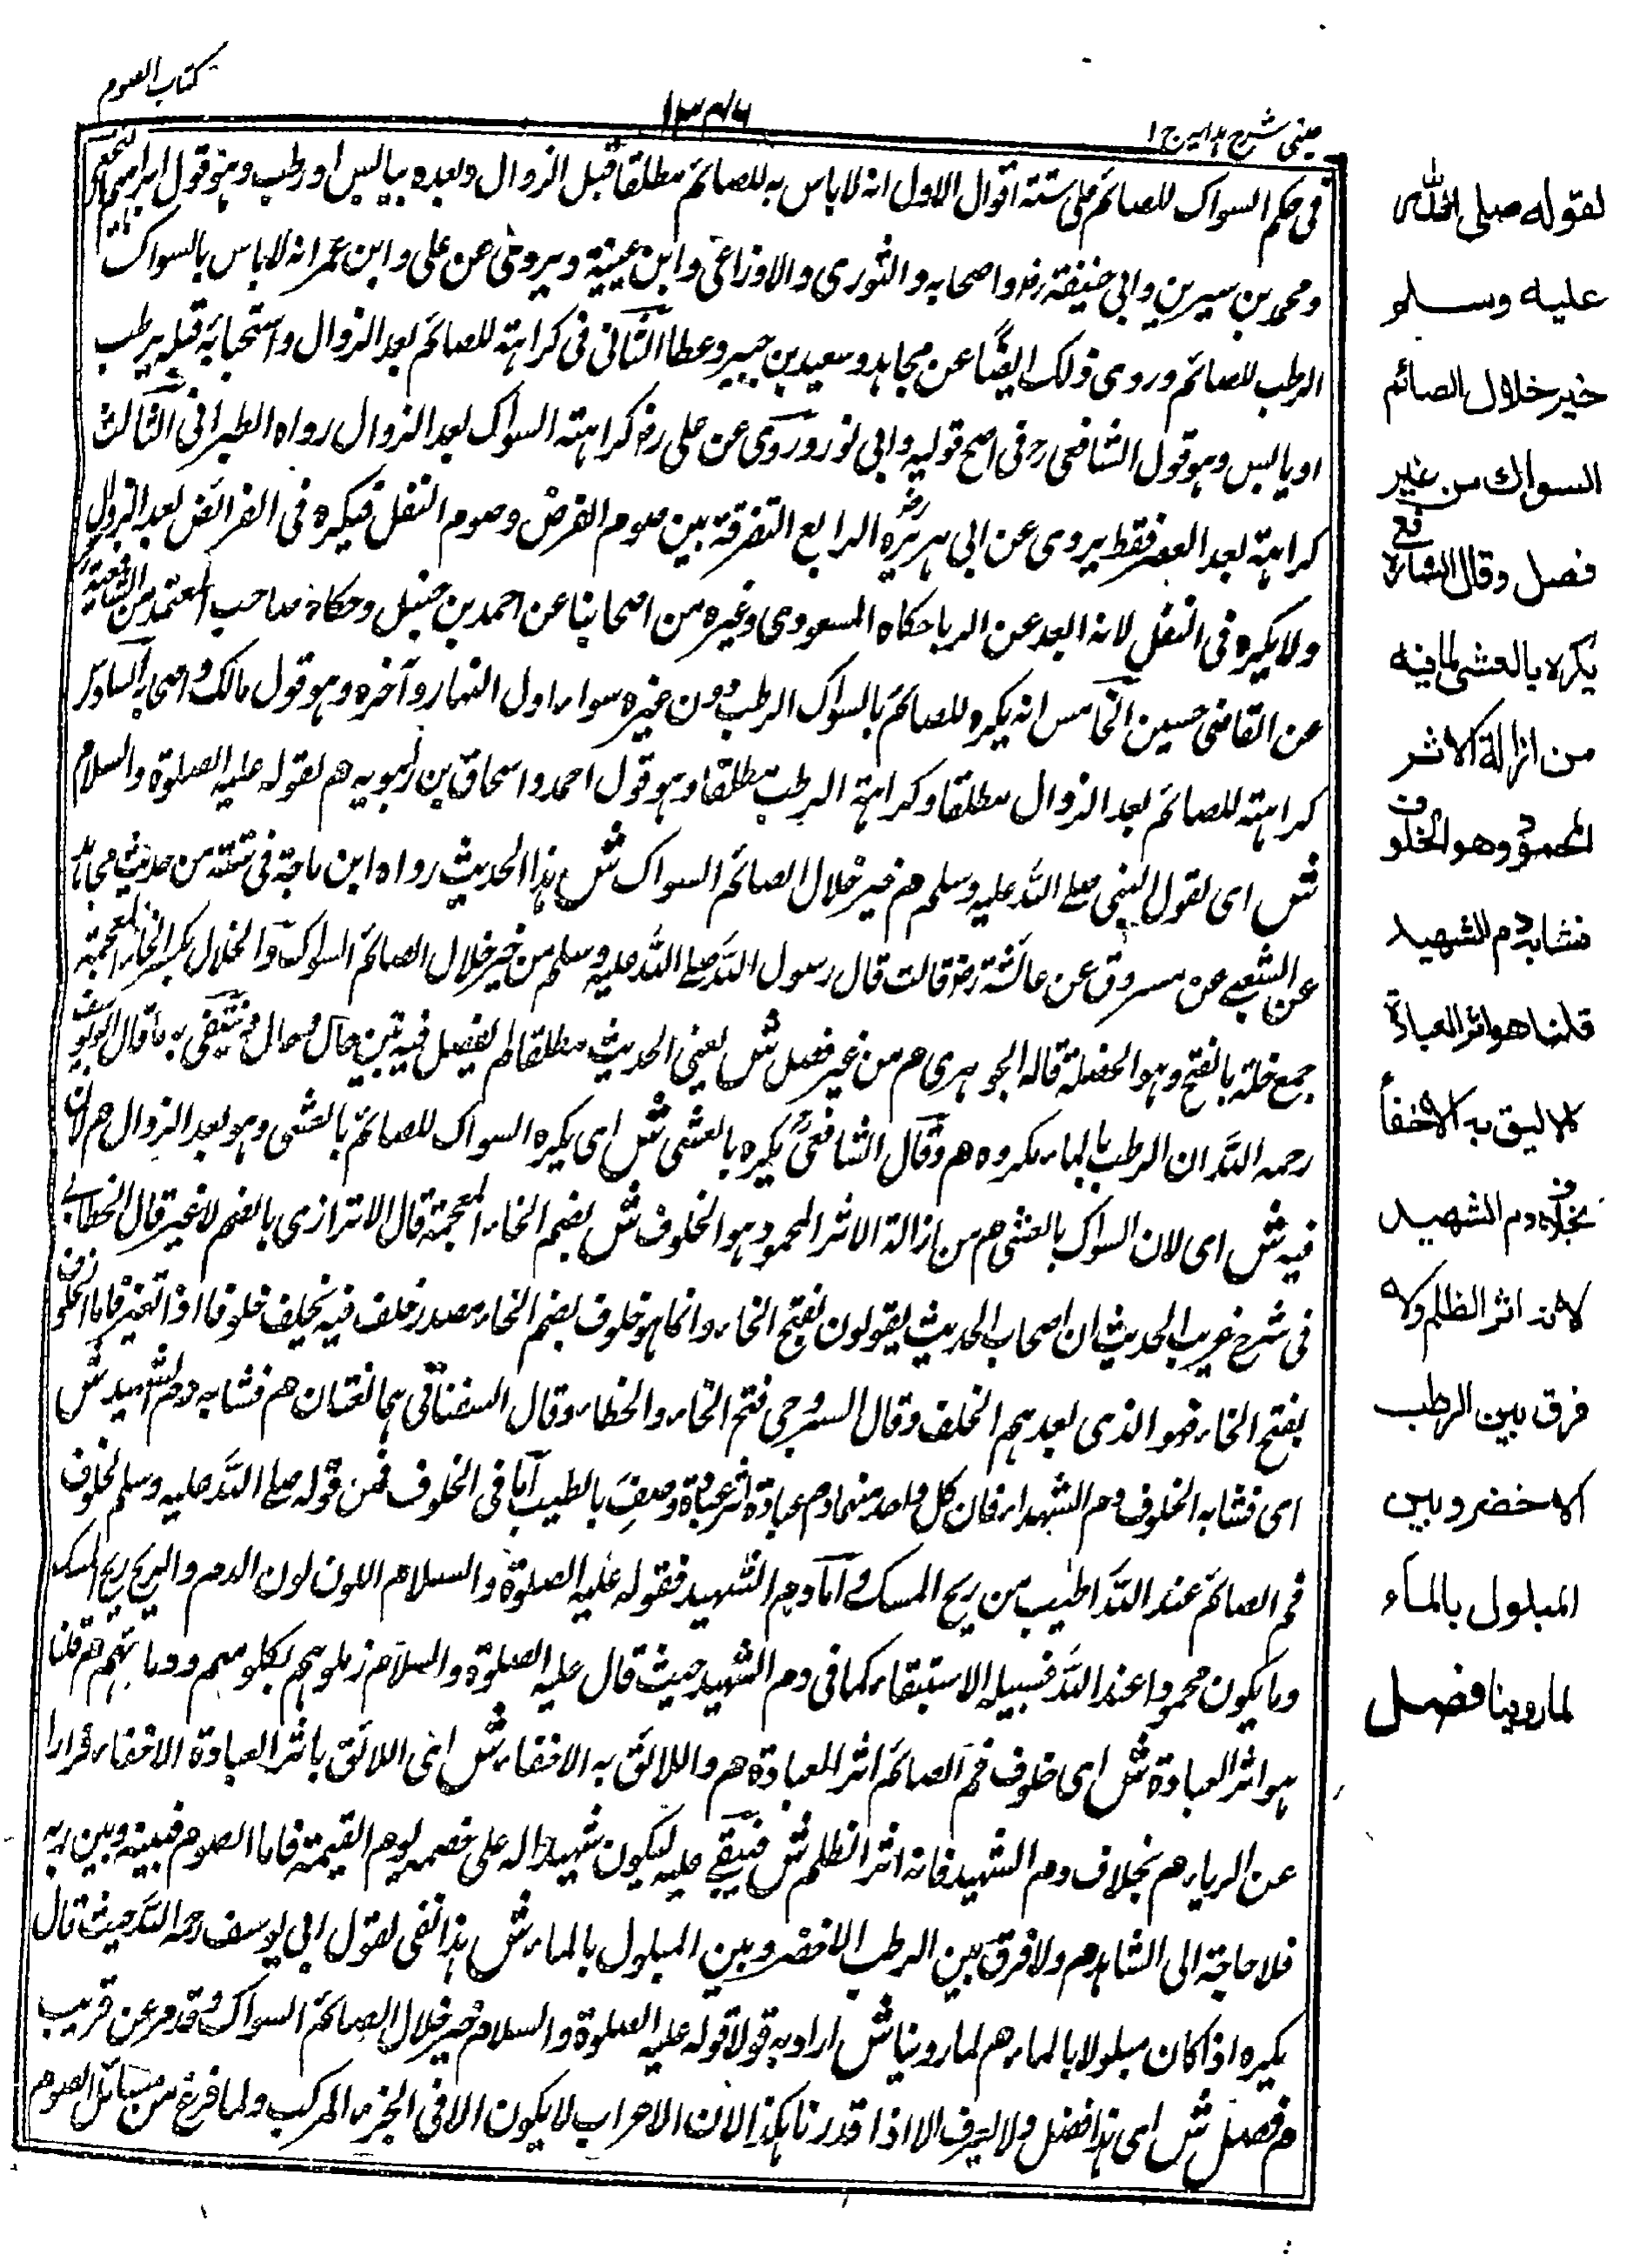 كتاب الصوم
١٣٤٦
عينى شرح هدايه ج ١
فى حكم السواك للصائم على ستة اقوال الاول انه لا باس به للصائم مطلقا قبل الزوال وبعده بيابس او رطب وهو قول ابراهيم النخعى
ومحمد بن سيرين وابى حنيفة رض واصحابه والثورى والاوزاعى وابن عيينة ويروى عن على وابن عمر انه لا باس بالسواك
الرطب للصائم وروى ذلك ايضا عن مجاهد وسعيد بن جبير وعطا الثانى فى كراهة للصائم بعد الزوال واستحبابه قبله برطب
او يابس وهو قول الشافعى رح فى اصح قوليه وابى ثور وروى عن على رض كراهته السواك بعد الزوال رواه الطبرانى الثالث
كراهة بعد العصر فقط يروى عن ابى هريرة رض الرابع التفرقة بين صوم الفرض وصوم النفل فيكره فى الفرائض بعد الزوال
ولا يكره فى النفل لانه ابعد عن الريا حكاه المسعودى وغيره من اصحابنا عن احمد بن حنبل وحكاه صاحب المعتمد من الشافعية
عن القاضى حسين الخامس انه يكره للصائم بالسواك الرطب دون غيره سواء اول النهار وآخره وهو قول مالك واصحابه السادس
كراهته للصائم بعد الزوال مطلقا وكراهة الرطب مطلقا وهو قول احمد واسحاق بن راهويه هم لقوله عليه الصلوة والسلام
ش اى لقول النبى صلى الله عليه وسلم هم خير خلال الصائم السواك ش هذا الحديث رواه ابن ماجة فى سننه من حديث مجالد
عن الشعبى عن مسروق عن عائشة رض قالت قال رسول الله صلى الله عليه وسلم من خير خلال الصائم السواك والخلال بكسر الخاء المعجمة
جمع خلة بالفتح وهو الخصلة قاله الجوهرى م من غير فصل ش يعنى الحديث مطلقا لم يفصل فيه بين حال وحال فينتفى به ما قال ابو يوسف
رحمه الله ان الرطب بالماء مكروه هم وقال الشافعى يكره بالعشى ش اى يكره السواك للصائم بالعشى وهو بعد الزوال هم لان
فيه ش اى لان السواك بالعشى هم من ازالة الاثر المحمود وهو الخلوف ش بضم الخاء المعجمة قال الاترازى بالضم لا غير قال الخطابى
فى شرح غريب الحديث ان اصحاب الحديث يقولون بفتح الخاء وانما هو خلوف بضم الخاء مصدر خلف فيه يخلف خلوفا اذا تغير فاما الخلوف
بفتح الخاء فهو الذى بعدهم الخلف وقال السروجى فتح الخاء والخطاء وقال السغناقى هما لغتان هم فشابه دم الشهيد ش
اى فشابه الخلوف دم الشهداء فان كل واحد منهما دم عبادة اثر عبادة وصف بالطيب اما فى الخلوف فمن قوله صلى الله عليه وسلم لخلوف
فم الصائم عند الله اطيب من ريح المسك واما دم الشهيد فقوله عليه الصلوة والسلام اللون لون الدم والريح ريح المسك
وما يكون محمودا عند الله فسبيله الاستبقاء كما فى دم الشهيد حيث قال عليه الصلوة والسلام زملوهم بكلومهم ودمائهم هم قلنا
هو اثر العبادة ش اى خلوف فم الصائم اثر العبادة هم واللائق به الاخفاء ش اى اللائق باثر العبادة الاخفاء فرارا
عن الرياء هم بخلاف دم الشهيد فانه اثر الظلم ش فيبقى عليه ليكون شهيدا له على خصمه يوم القيمة فاما الصوم فبينه وبين ربه
فلا حاجة الى الشاهد هم ولا فرق بين الرطب الاخضر وبين المبلول بالماء ش هذا نفى لقول ابى يوسف رحمه الله حيث قال
يكره اذا كان مبلولا بالماء هم لما روينا ش اراد به قولا قوله عليه الصلوة والسلام خير خلال الصائم السواك وقد مر عن قريب
م فصل ش اى هذا فصل ولا يعرف الا اذا قدرنا هكذا لان الاعراب لا يكون الا فى الجزء المركب ولما فرغ من مسائل الصوم
لقوله صلى الله
عليه وسلم
خير خلال الصائم
السواك من غير
فصل وقال الشافعى
يكره بالعشى لما فيه
من ازالة الاثر
المحمود وهو الخلوف
فشابه دم الشهيد
قلنا هو اثر العبادة
لا ليق به الاخفاء
بخلاف دم الشهيد
لانه اثر الظلم ولا
فرق بين الرطب
الاخضر وبين
المبلول بالماء
لما روينا فصل